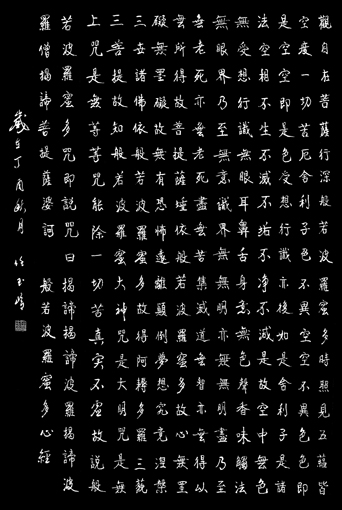 觀自在菩薩行深般若波羅蜜多時照見五蘊皆
空度一切苦厄舍利子色不異空空不異色色即
是空空即是色受想行識亦復如是舍利子是諸
法空相不生不滅不垢不淨不減是故空中無色
無受想行識無眼耳鼻舌身意無色聲香味觸法
無眼界乃至無意識界無無明亦無無明盡乃至
無老死亦無老死盡無苦集滅道無智亦無得以
無所得故菩提薩埵依般若波羅蜜多故心無罣
礙無罣礙故無有恐怖遠離顛倒夢想究竟涅槃
三世諸佛依般若波羅蜜多故得阿耨多羅三藐
三菩提故知般若波羅蜜大神咒是大明咒是無
上咒是無等等咒能除一切苦真實不虛故說般
若波羅蜜多咒即說咒曰揭諦揭諦波羅揭諦波
羅僧揭諦菩提薩婆訶 般若波羅蜜多心經
歲在丁酉秋月